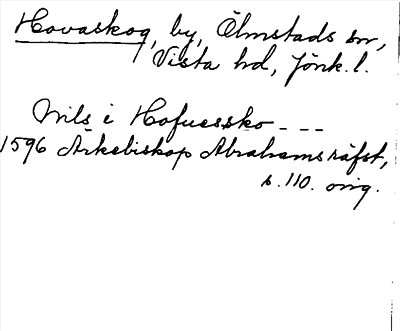 Hovaskog, by, Ölmstads sn,
Vista hd, Jönk. l.
Nils i Hofuessko - - -
1596 Ärkebiskop Abrahams räfst,
s. 110. orig.